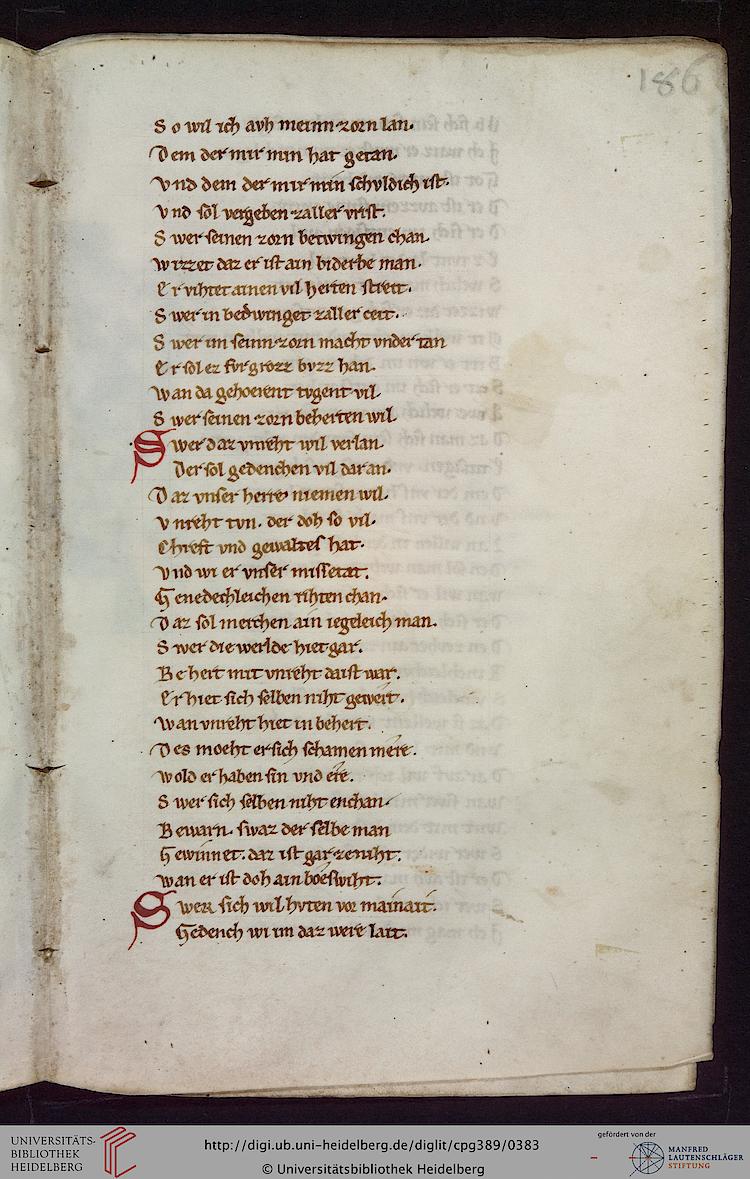 186
So wil ich avh meinn zorn lan.
Dem der mir min hat getan.
Vnd dem der mir min schvldich ist.
Vnd sol vergeben zaller vrist.
Swer seinen zorn betwingen chan.
Wizzet daz er ist ain biderbe man.
Er vihtet ainen vil herten streit.
Swer in bedwinget zaller ceit.
Swer im seinn zorn macht vnder tan
Er sol ez fvr grozz bvzz han.
Wan da gehoerent tvgent vil.
Swer seinen zorn beherten wil.
Swer daz vnreht wil verlan.
Der sol gedenchen vil dar an.
Daz vnser herre niemen wil.
Vnreht tvn. der doh so vil.
Chreft vnd gewaltes hat.
Vnd wi er vnser missetat.
Genedechleichen rihten chan.
Daz sol merchen ain iegeleich man.
Swer die werlde hiet gar.
Behert mit vnreht daist war.
Er hiet sich selben niht gewert.
Wan vnreht hiet in behert.
Des moeht er sich schamen mere.
Wold er haben sin vnd ere.
Swer sich selben niht enchan.
Bewarn. swaz der selbe man
Gewinnet. daz ist gar ze niht.
Wan er ist doh ain boeswiht.
Swer sich wil hvten vor mainait.
Gedench wi im daz were lait.
UNIVERSITÄTS-
BIBLIOTHEK
HEIDELBERG
http://digi.ub.uni-heidelberg.de/diglit/cpg389/0383
© Universitätsbibliothek Heidelberg
gefördert von der
MANFRED
LAUTENSCHLÄGER
STIFTUNG